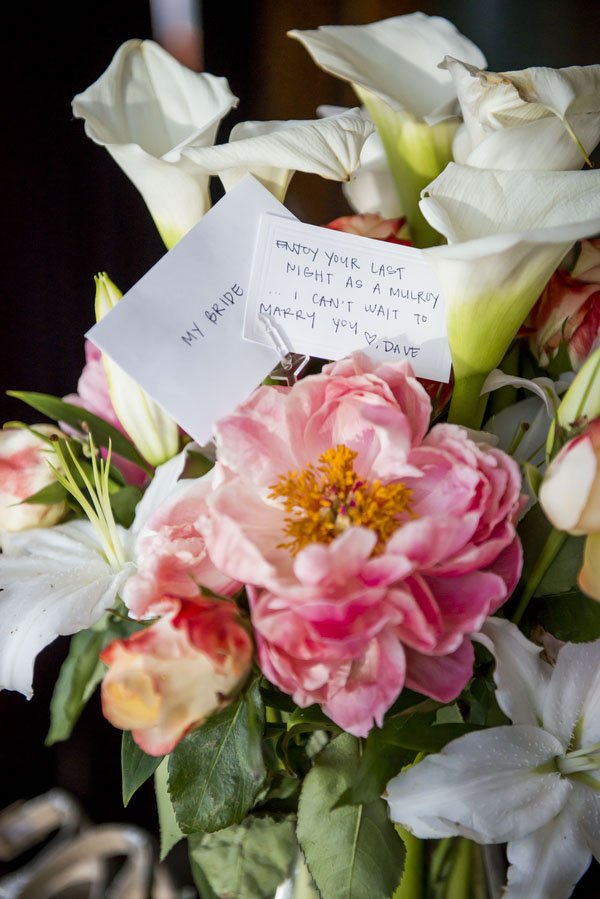 MY BRIDE
ENJOY YOUR LAST
NIGHT AS A MULROY
... I CAN'T WAIT TO
MARRY YOU ♡, DAVE